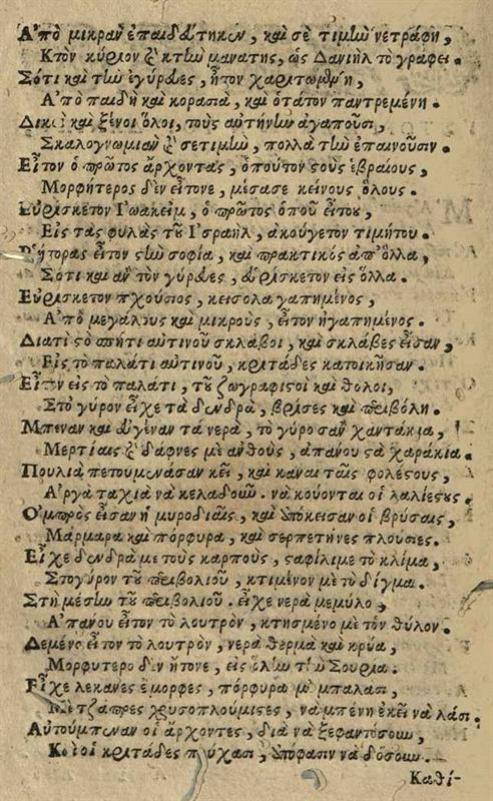 Ἀπὸ μικρὰν ἐπαιδδύτηκεν, καὶ σὲ τιμὴν ἐτράφη,
Κτὸν κύριον κτὴν μανατης, ὡς Δανιὴλ τὸ γράφει.
Σότι καὶ τὴν ἐγύρδες, ἦτον χαριτωμένη,
Ἀπὸ παιδὴ καὶ κορασιὰ, καὶ ὁτάτον παντρεμένη.
Δικοὶ καὶ ξένοι ὅλοι, τοὺς αὐτήνὼ ἀγαποῦσι,
Σκαλογνωμιαν σετιμὼ, πολλὰ τὼ ἐπαινοῦσιν.
Εἶτον ὁ πρῶτος ἄρχοντας, ὁποῦτον ςοὺς ἑβραίους,
Μορφήτερος δὲν εἶτονε, μίσασε κείνους ὅλους.
Εὑρίσκετον Ἰωακεὶμ, ὁ πρῶτος ὁποῦ εἶτον,
Εἰς τὰς φυλὰς τῦ Ἰσραὴλ, ἀκούγετον τιμήτου.
Ῥήτορας εἶτον ςὼ σοφία, καὶ πρακτικὸς ἀπ' ὅλλα,
Σότι καὶ αν τὸν γύρδες, δύρίσκετον εἰς ὅλλα.
Εὑρίσκετον πχούσιος, κεισολα γαπημένος,
Ἀπὸ μεγάλους καὶ μικροὺς, εἶτον ἠγαπημένος.
Διατὶ ςὸ σπήτι αὐτινοῦ σκλάβοι, καὶ σκλάβες εἶσαν,
Εἰς τὸ παλάτι αὐτινοῦ, κριτάδες κατοικῆσαν.
Εἶτον εἰς τὸ παλάτι, τῦ ζωγραφιςοὶ καὶ θόλοι,
Στὸ γύρον εἶχε τὰ δένδρὰ, βρίσες καὶ περιβόλη.
Μπέναν καὶ δύγέναν τὰ νερὰ, τὸ γύρο σαν χαντάκια,
Μερτίαις δάφνες μὲ ανθοὺς, ἀπάνου ςὰ χαράκια.
Πουλιὰ πετουμενάσαν κεῖ, καὶ καναι ταῖς φολέςους,
Ἀργὰ ταχιὰ νὰ κελαδοῦν. νὰ κούονται οἱ λαλιέςους.
Ὀμπρὸς εἶσαν ἡ μυροδιαῖς, καὶ ὑπόκεισαν οἱ βρύσαις,
Μάρμαρα καὶ πόρφυρα, καὶ σερπετήνες πλούσιες.
Εἶχε δένδρὰ μὲ τοὺς καρποὺς, ςαφίλιμε τὸ κλίμα,
Στογύρον τῦ περιβολιοῦ, κτιμένον μὲ τὸ δίγμα.
Στὴ μέσὼ τῦ περιβολιοῦ. εἶχε νερὰ μεμύλο,
Ἀπάνου εἶτον τὸ λουτρὸν, κτησμένο μὲ τὸν θύλον.
Δεμένο εἶτον τὸ λουτρὸν, νερὰ θερμὰ καὶ κρύα,
Μορφυτερο δὲν ἤτονε, εἰς ὅλὼ τὼ Σουρία.
Εἶχε λεκανες ἔμορφες, πόρφυρα μὲ μπαλασι,
Κὲ τζάπρες χρυσοπλούμισες, νὰ μπένη ἐκεῖ νὰ λάσι.
Αὐτούμπεναν οἱ ἄρχοντες, διὰ νὰ ξεφαντόσου,
Κοἱ κριτάδες ὑπόφασιν νὰ δόσου.
Καθί-